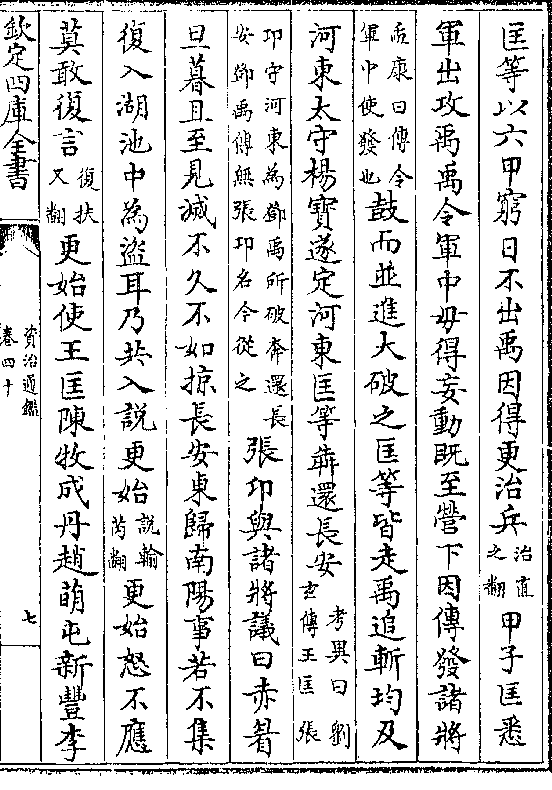 匡等以六甲窮日不出禹因得更治兵治直之翻甲子匡悉
軍出攻禹禹令軍中毋得妄動既至營下因傳發諸將
孟康曰傳令軍中使發也鼓而並進大破之匡等皆走禹追斬均及
河東太守楊寶遂定河東匡等犇還長安考異曰劉玄傳王匡張
卬守河東為鄧禹所破奔還長安鄧禹傳無張卬名今從之張卬與諸將議曰赤眉
旦暮且至見滅不久不如掠長安東歸南陽事若不集
復入湖池中為盜耳乃共入說更始說輸芮翻更始怒不應
莫敢復言復扶又翻更始使王匡陳牧成丹趙萌屯新豐李
欽定四庫全書
資治通鑑
卷四十
七